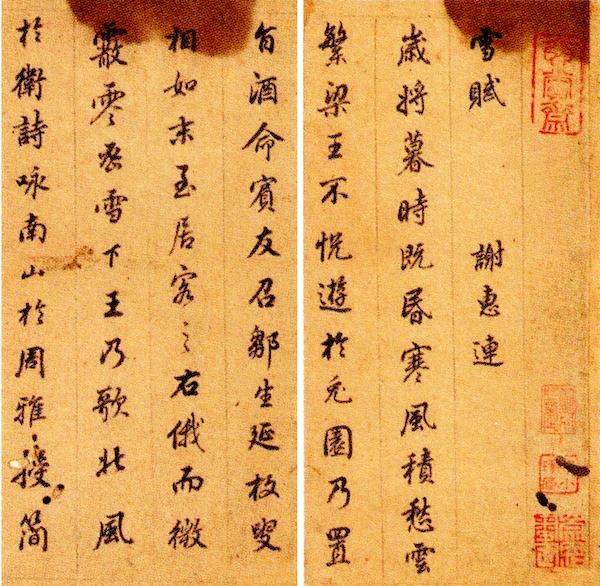 雪賦 謝惠連
歲將暮時既昏寒風積愁雲
繁梁王不悅遊於兔園乃置
旨酒命賓友召鄒生延枚叟
相如末至居客之右俄而微
霰零密雪下王乃歌北風
於衛詩咏南山於周雅授簡